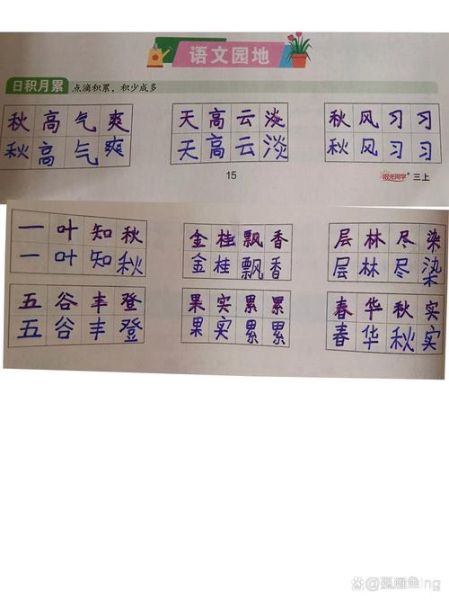 语文园地
日积月累 点滴积累，积少成多
秋高气爽 天高云淡 秋风习习
秋高气爽 天高云淡 秋风习习
15 阳光同学 三上
一叶知秋 金桂飘香 层林尽染
一叶知秋 金桂飘香 层林尽染
五谷丰登 果实累累 春华秋实
五谷丰登 果实累累 春华秋实